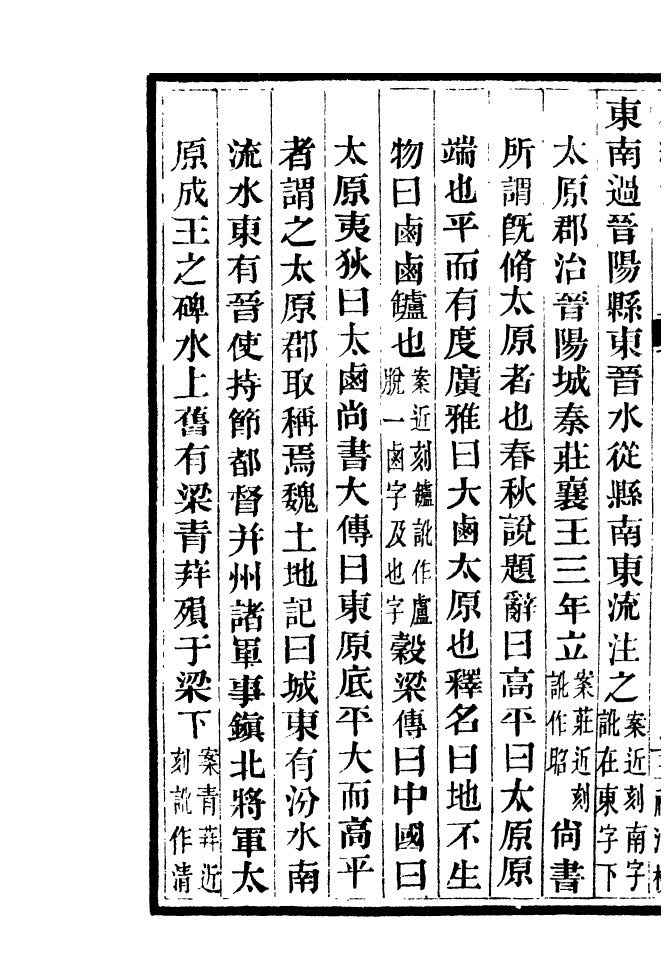 東南過晉陽縣東晉水從縣南東流注之案近刻南字訛在東字下
太原郡治晉陽城秦莊襄王三年立案莊近刻訛作昭尙書
所謂旣脩太原者也春秋說題辭曰高平曰太原原
端也平而有度廣雅曰大鹵太原也釋名曰地不生
物曰鹵鹵罏也案近刻罏訛作盧脫一鹵字及也字穀梁傳曰中國曰
太原夷狄曰太鹵尙書大傳曰東原底平大而高平
者謂之太原郡取稱焉魏土地記曰城東有汾水南
流水東有晉使持節都督并州諸軍事鎭北將軍太
原成王之碑水上舊有梁青荓殞于梁下案青荓近刻訛作清